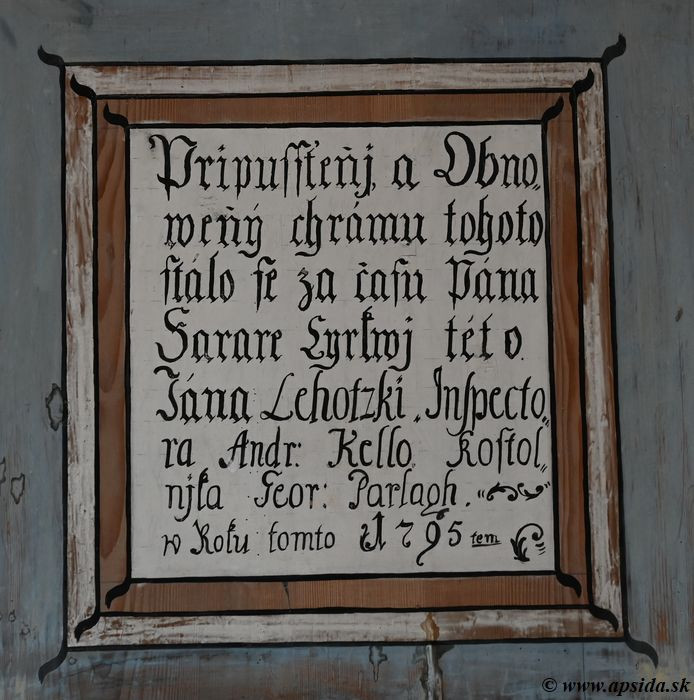 Pripuſſťeňj, a Obno„
weňý chrámu tohoto
ſtálo ſe za čaſu Pána
Farare Cyrkwj této.
Jána Lehotzki, Inſpecto„
ra Andr: Kello, Koſtol„
njka Geor: Parlagh.
w Roku tomto 1795 tem
© www.apsida.sk